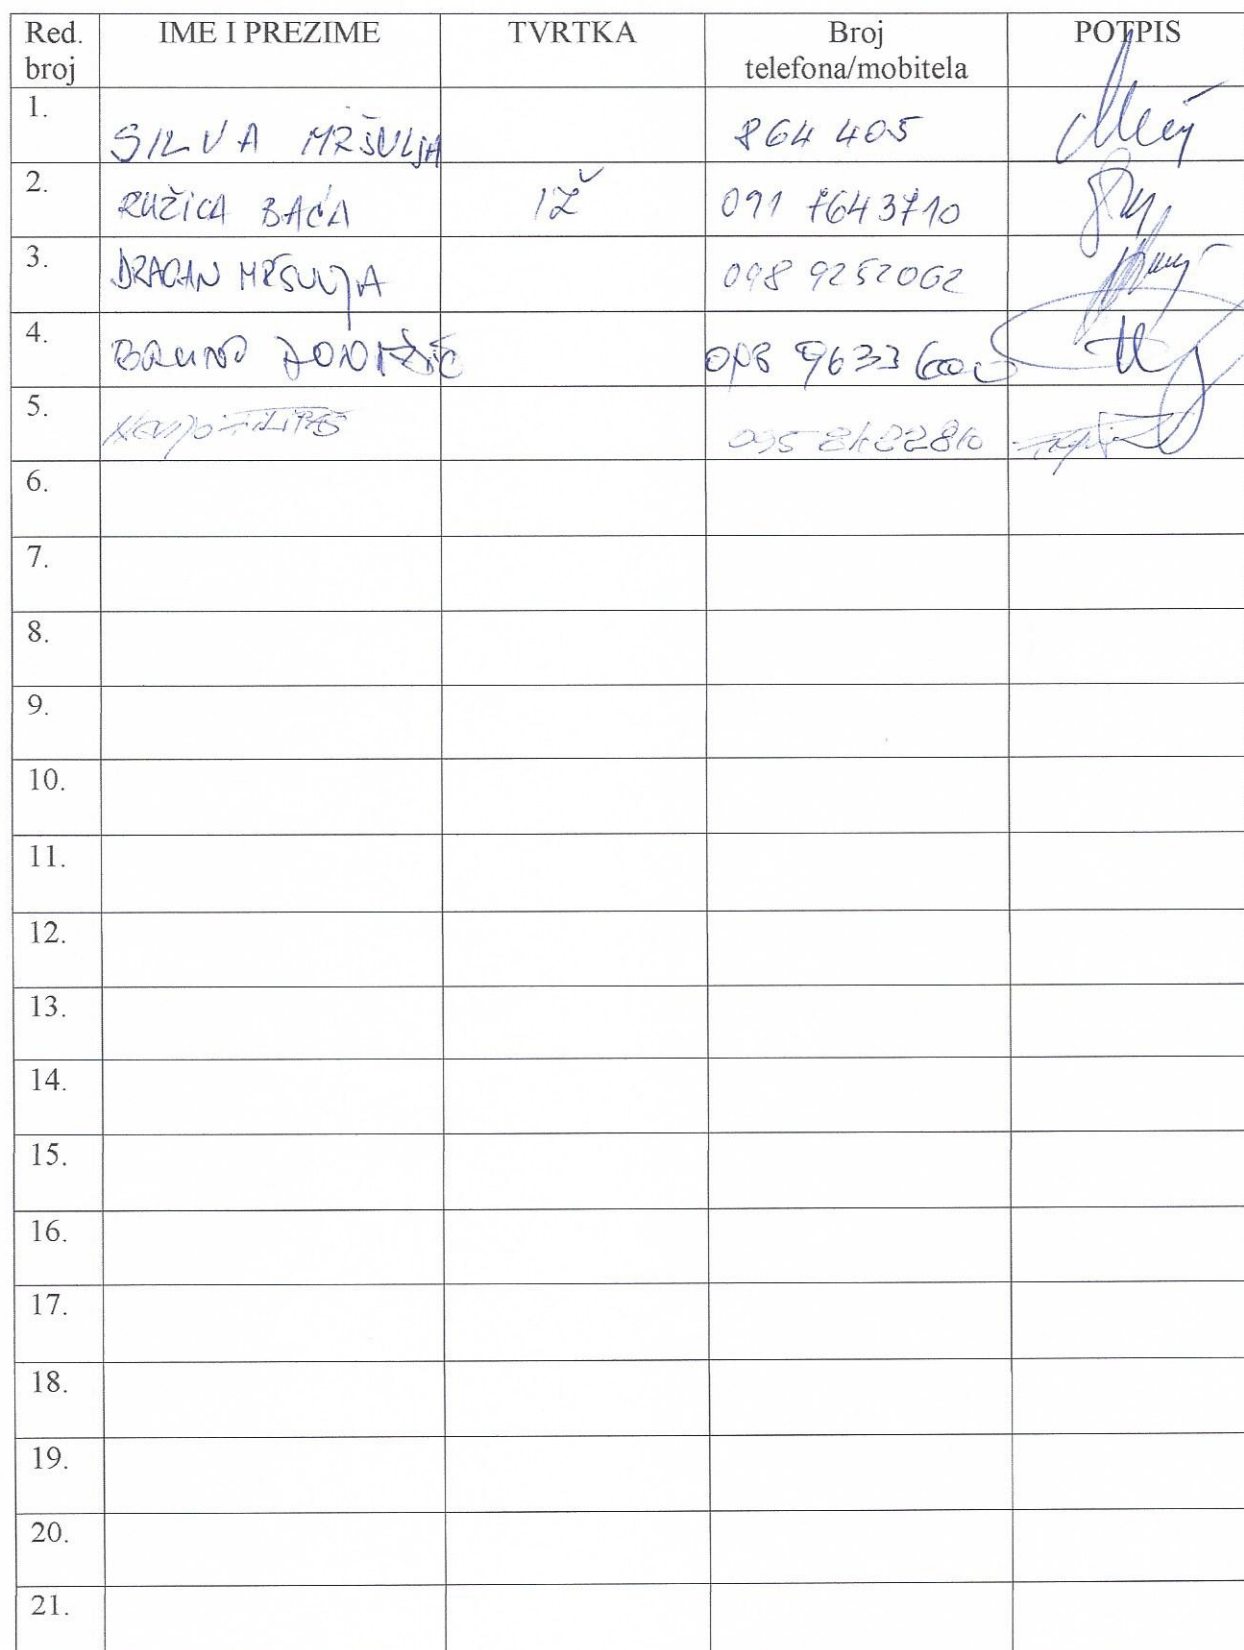 Red. broj IME I PREZIME TVRTKA Broj telefona/mobitela POTPIS
1. SILVA MRŠULJA 864 405
2. RUŽICA BAĆA IŽ 091 7643710
3. DRAGAN MRŠULJA 098 9252062
4. BRUNO 098
5. FILIPAS 095
6.
7.
8.
9.
10.
11.
12.
13.
14.
15.
16.
17.
18.
19.
20.
21.